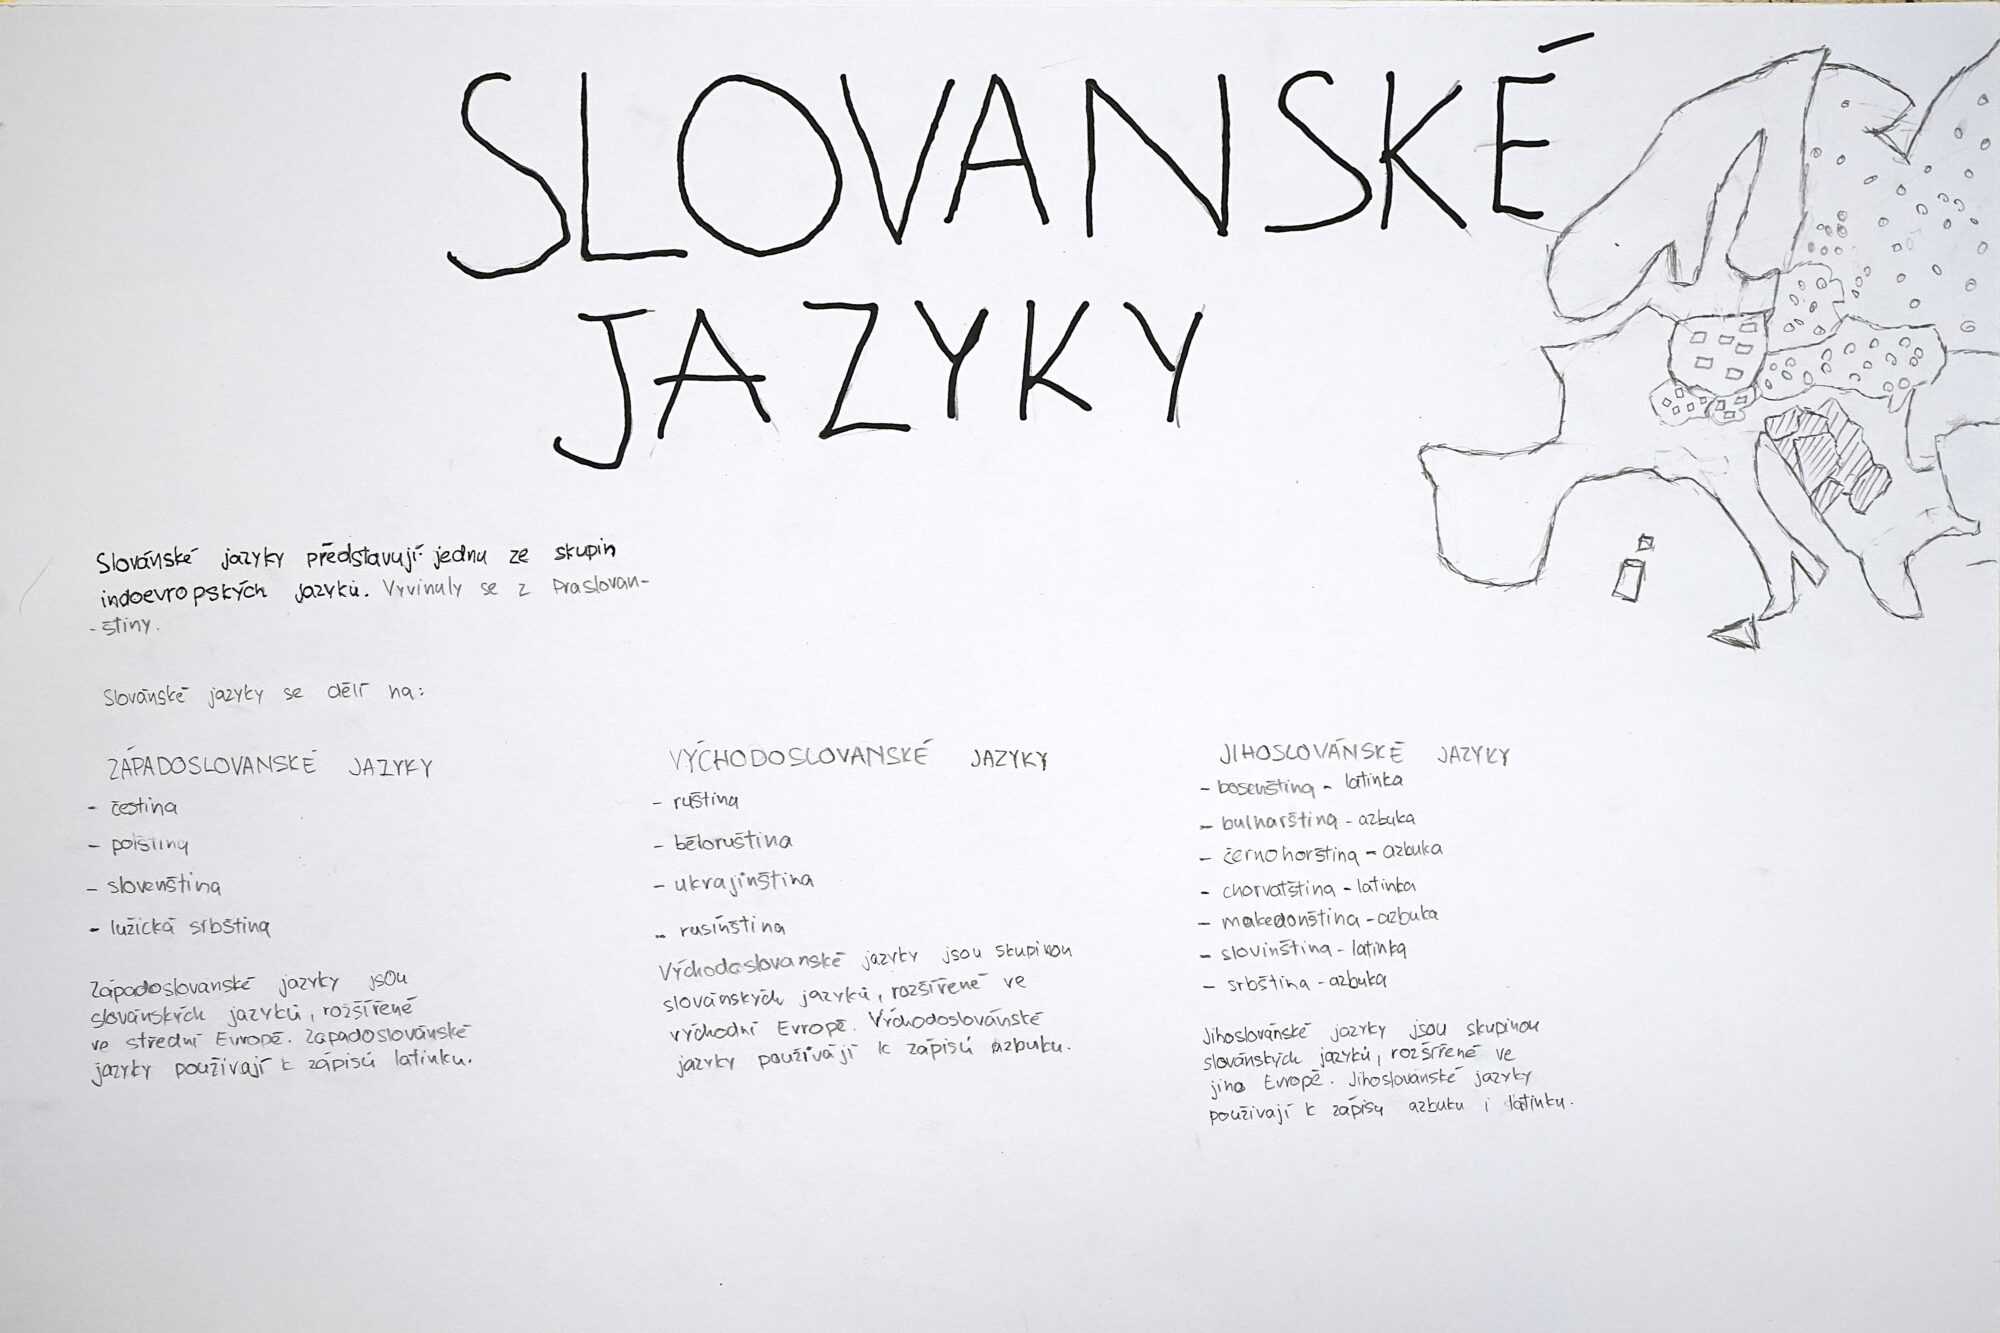 SLOVANSKÉ
JAZYKY
Slovánské jazyky představují jednu ze skupin
indoevropských jazyků. Vyvinuly se z Praslovan-
-štiny.
Slovánské jazyky se dělí na:
ZÁPADOSLOVANSKÉ JAZYKY
- čeština
- polština
- slovenština
- lužická srbština
Západoslovanské jazyky jsou
slovánských jazyků, rozšířené
ve střední Evropě. Západoslovánské
jazyky používají k zápisů latinku.
VÝCHODOSLOVANSKÉ JAZYKY
- ruština
- běloruština
- ukrajinština
- rusínština
Východoslovanské jazyky jsou skupinou
slovánských jazyků, rozšířené ve
východní Evropě. Východoslovánské
jazyky používají k zápisů azbuku.
JIHOSLOVÁNSKÉ JAZYKY
- bosenština - latinka
- bulharština - azbuka
- černohorština - azbuka
- chorvatština - latinka
- makedonština - azbuka
- slovinština - latinka
- srbština - azbuka
Jihoslovánské jazyky jsou skupinou
slovánských jazyků, rozšířené ve
jihо Evropě. Jihoslovanské jazyky
používají k zápisu azbuku i latinku.